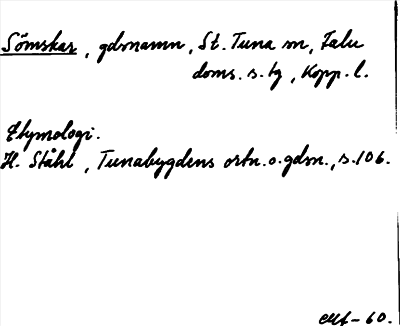 Sömskar, gdsnamn, St. Tuna sn, Falu
doms. s. tg, Kopp. l.
Etymologi.
H. Ståhl, Tunabygdens ortn. o. gdsn., s. 106.
-60.